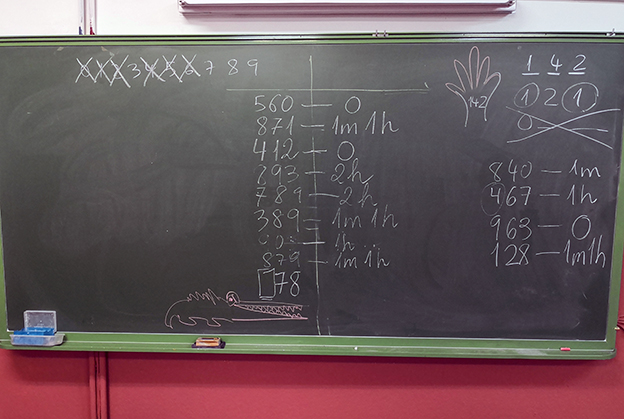 0 1 2 3 4 5 6 7 8 9
560 — 0
871 — 1m 1h
412 — 0
893 — 2h
789 — 2h
389 — 1m 1h
1h
879 — 1m 1h
78
142
1 4 2
1 2 1
0
840 — 1m
467 — 1h
963 — 0
128 — 1m1h